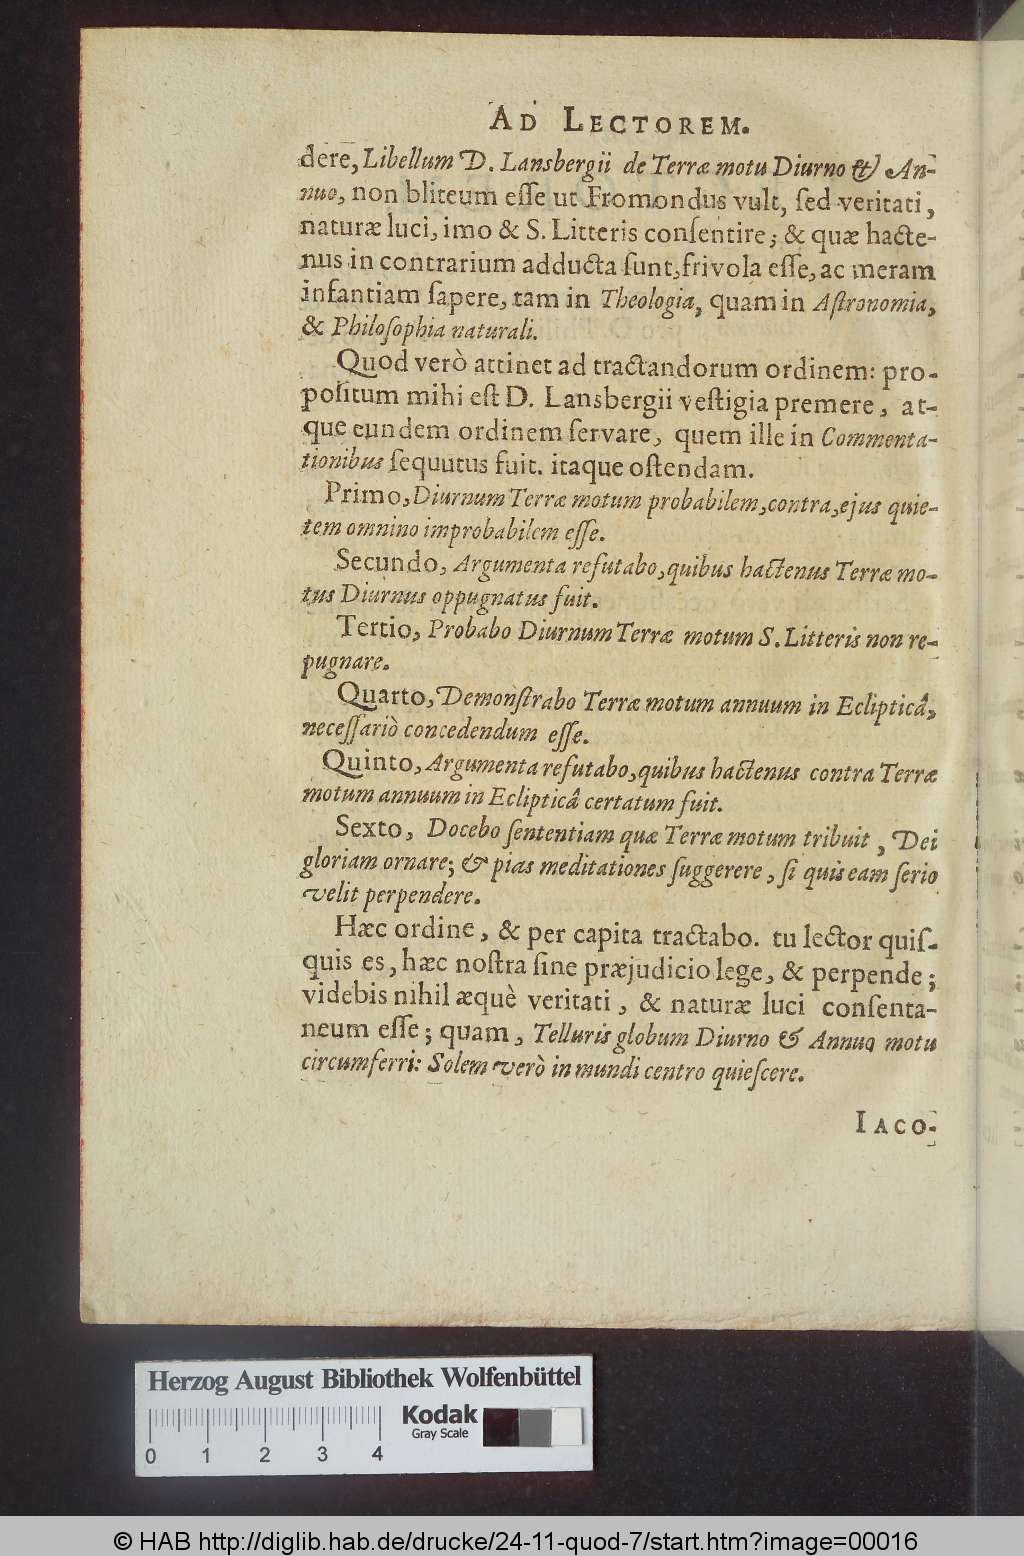 AD LECTOREM.
dere, Libellum D. Lansbergii de Terræ motu Diurno & An-
nuo, non bliteum eſſe ut Fromondus vult, ſed veritati,
naturæ luci, imo & S. Litteris conſentire; & quæ hacte-
nus in contrarium adducta ſunt, frivola eſſe, ac meram
infantiam ſapere, tam in Theologia, quam in Aſtronomia,
& Philoſophia naturali.
Quod verò attinet ad tractandorum ordinem: pro-
poſitum mihi eſt D. Lansbergii veſtigia premere, at-
que eundem ordinem ſervare, quem ille in Commenta-
tionibus ſequutus fuit. itaque oſtendam.
Primo, Diurnum Terræ motum probabilem, contra, ejus quie-
tem omnino improbabilem eſſe.
Secundo, Argumenta refutabo, quibus hactenus Terræ mo-
tus Diurnus oppugnatus fuit.
Tertio, Probabo Diurnum Terræ motum S. Litteris non re-
pugnare.
Quarto, Demonſtrabo Terræ motum annuum in Eclipticâ,
neceſſariò concedendum eſſe.
Quinto, Argumenta refutabo, quibus hactenus contra Terræ
motum annuum in Eclipticâ certatum fuit.
Sexto, Docebo ſententiam quæ Terræ motum tribuit, Dei
gloriam ornare; & pias meditationes ſuggerere, ſi quis eam ſerio
velit perpendere.
Hæc ordine, & per capita tractabo. tu lector quiſ-
quis es, hæc noſtra ſine præjudicio lege, & perpende;
videbis nihil æquè veritati, & naturæ luci conſenta-
neum eſſe; quam, Telluris globum Diurno & Annuo motu
circumferri: Solem verò in mundi centro quieſcere.
IACO-
Herzog August Bibliothek Wolfenbüttel
Kodak
Gray Scale
0 1 2 3 4
© HAB http://diglib.hab.de/drucke/24-11-quod-7/start.htm?image=00016